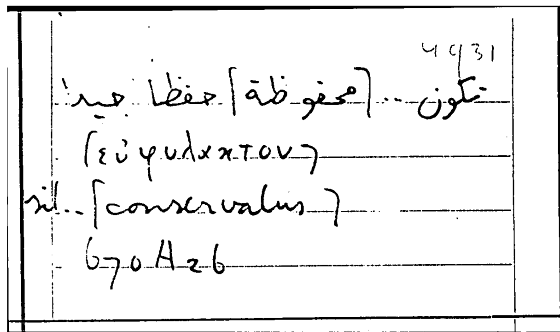 4931
تكون .. [محفوظة] حفظا جيدا
[εὐφυλακτον]
sit.. [conservatus]
670 A26